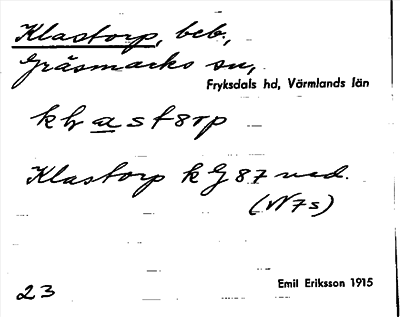 Klastorp, beb.,
Gräsmarks sn,
Fryksdals hd, Värmlands län
Klastorp k G 87 ned.
(N7s)
23
Emil Eriksson 1915